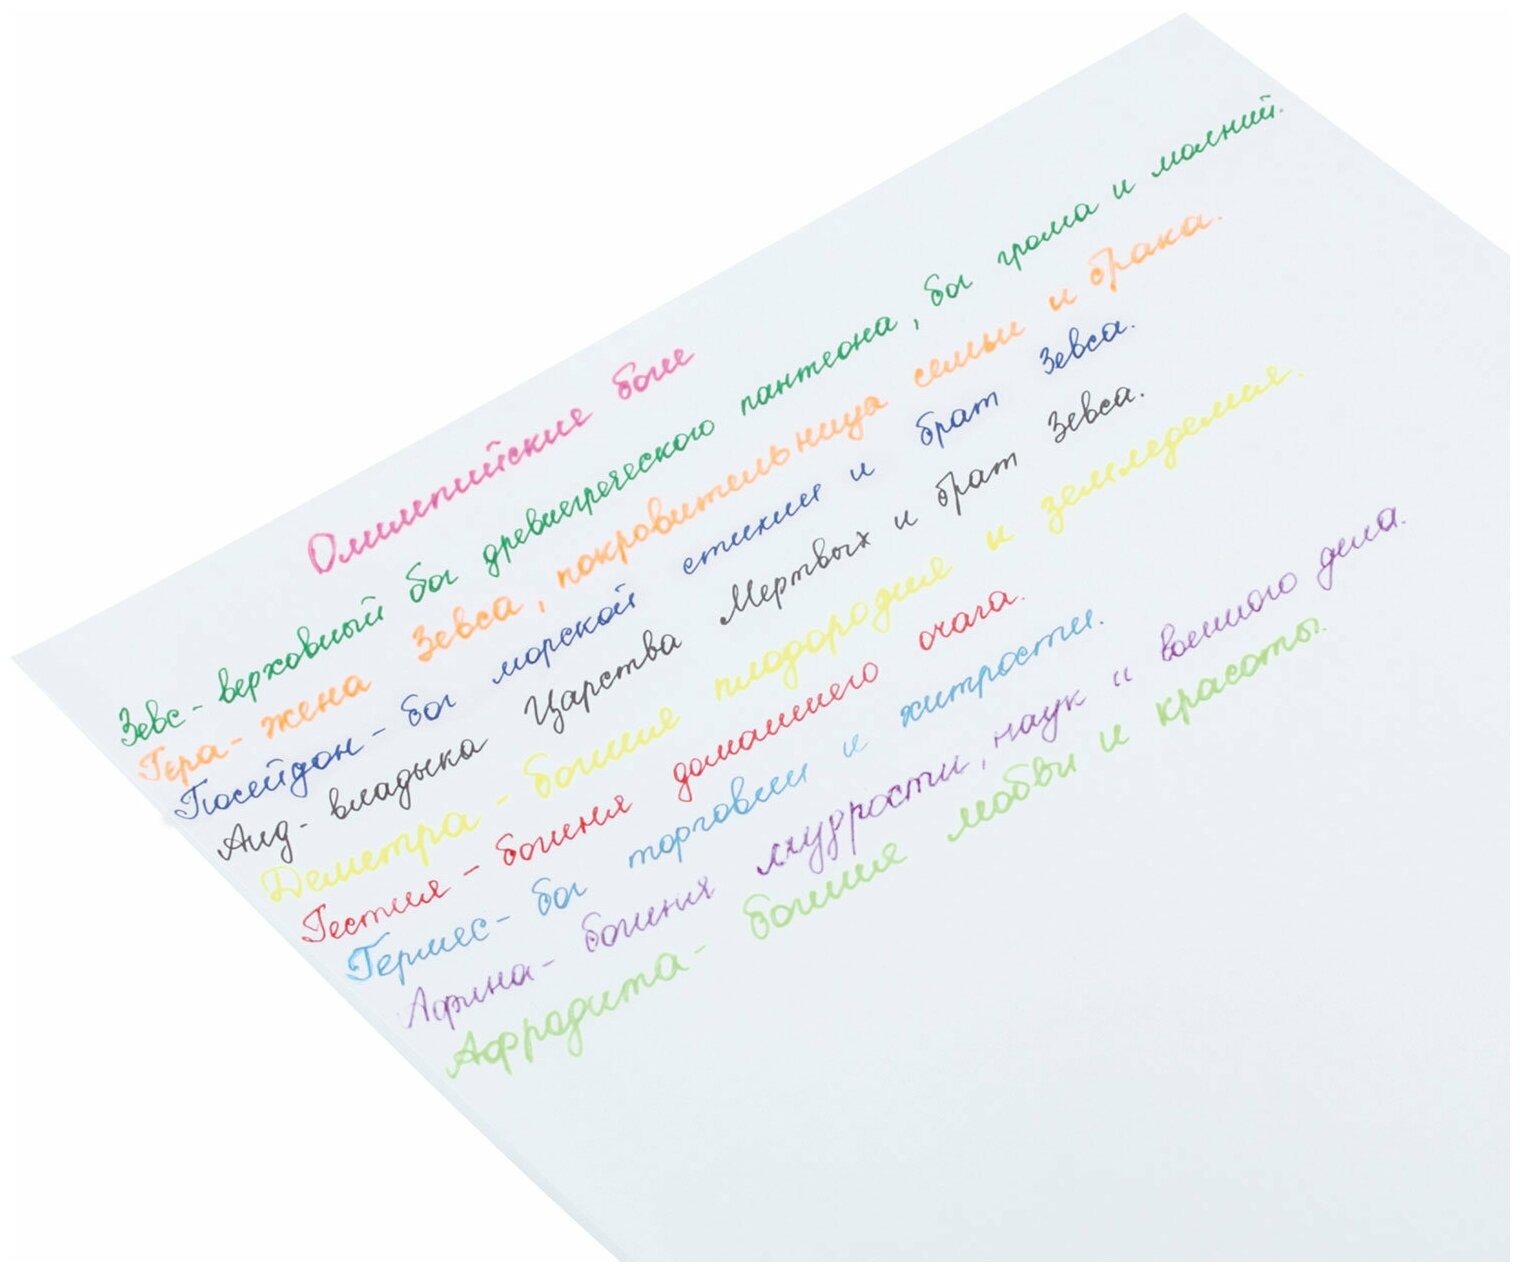 Олимпийские боги
Зевс - верховный бог древнегреческого пантеона, бог грома и молний.
Гера - жена Зевса, покровительница семьи и брака.
Посейдон - бог морской стихии и брат Зевса.
Аид - владыка Царства Мертвых и брат Зевса.
Деметра - богиня плодородия и земледелия.
Гестия - богиня домашнего очага.
Гермес - бог торговли и хитрости.
Афина - богиня мудрости, наук и военного дела.
Афродита - богиня любви и красоты.